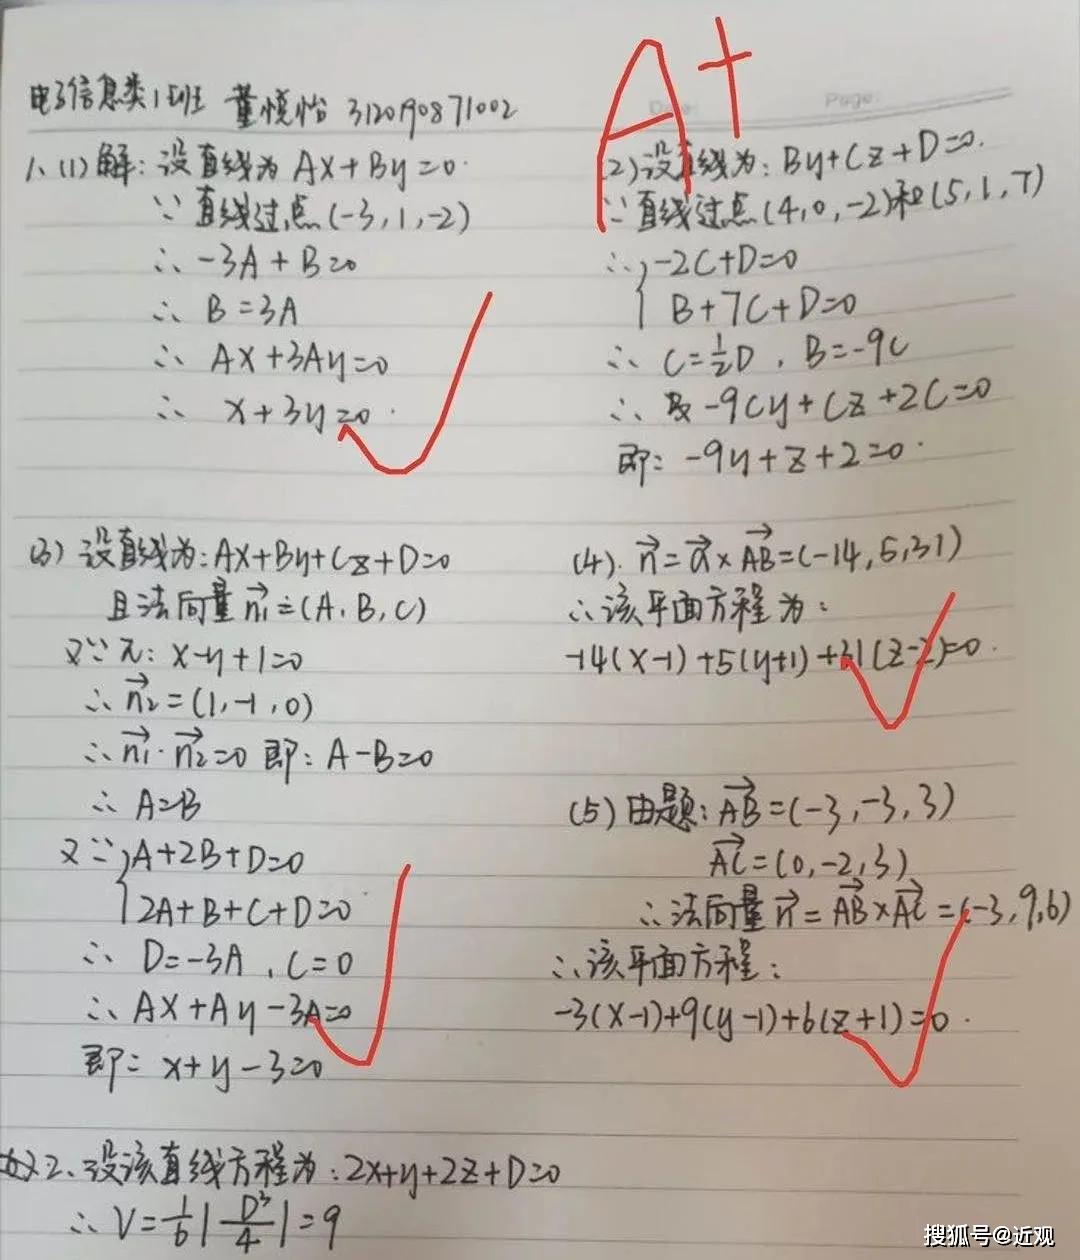 电子信息类1班 董悦怡 3120190871002
A+
Page:
1、(1)解：设直线为 Ax+By=0
∵直线过点(-3,1,-2)
∴ -3A+B=0
∴ B=3A
∴ Ax+3Ay=0
∴ x+3y=0.
(2)设直线为：By+Cz+D=0.
∵直线过点(4,0,-2)和(5,1,7)
∴{-2C+D=0
B+7C+D=0
∴ C=½D，B=-9C
∴ -9Cy+Cz+2C=0
即：-9y+z+2=0.
(3) 设直线为：Ax+By+Cz+D=0
且法向量 n₁⃗=(A,B,C)
又∵π：x-y+1=0
∴n₂⃗=(1,-1,0)
∴n₁⃗·n₂⃗=0 即：A-B=0
∴ A=B
又∵{A+2B+D=0
2A+B+C+D=0
∴ D=-3A，C=0
∴ Ax+Ay-3A=0
即：x+y-3=0
(4). n⃗=a⃗×AB⃗=(-14,5,31)
∴该平面方程为：
-14(x-1)+5(y+1)+31(z-2)=0.
(5) 由题：AB⃗=(-3,-3,3)
AC⃗=(0,-2,3)
∴法向量 n⃗=AB⃗×AC⃗=(-3,9,6)
∴该平面方程：
-3(x-1)+9(y-1)+6(z+1)=0.
2、设该直线方程为：2x+y+2z+D=0
∴ V=1/6|D³/4|=9
搜狐号@近观